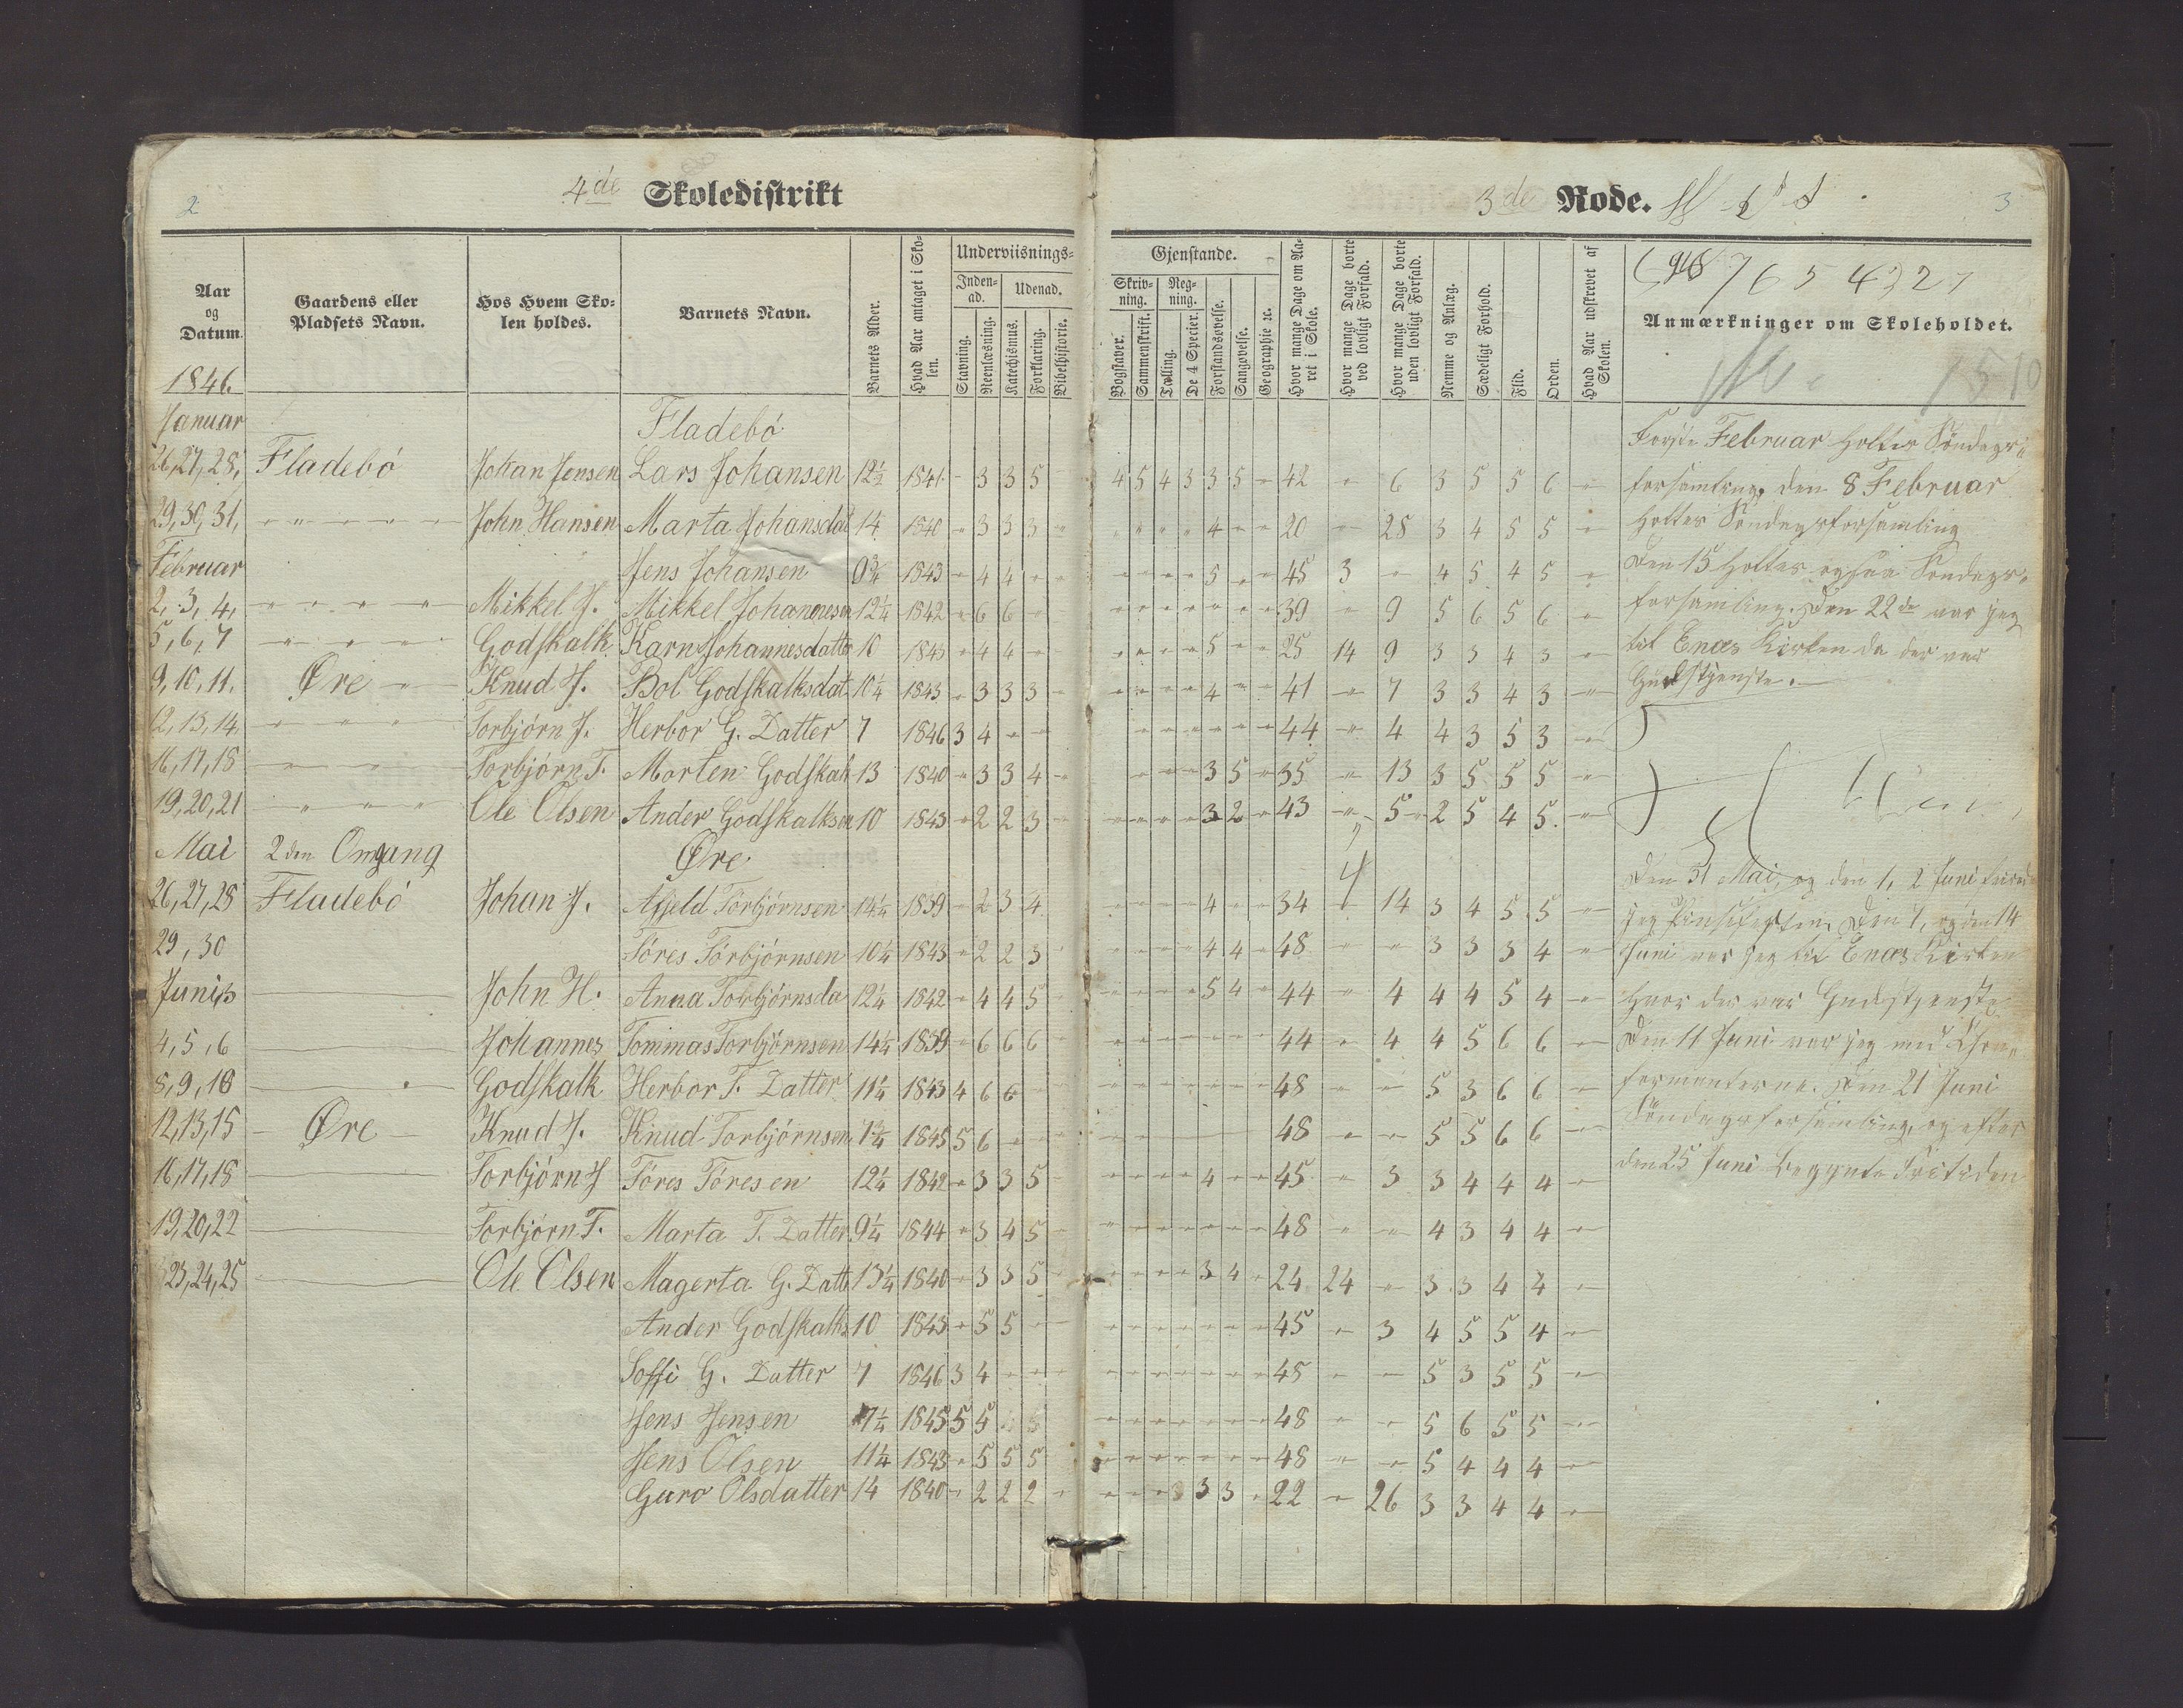 2
4de Skoledistrikt
Aar og Datum.
Gaardens eller Pladsets Navn.
Hos Hvem Skolen holdes.
Barnets Navn.
Barnets Alder.
Hvad Aar antaget i Skolen.
Underviisnings-
Inden-ad.
Udenad.
Stavning.
Reenlæsning.
Katechismus.
Forklaring.
Bibelhistorie.
1846.
Januar
Fladebó
26,27,28, Fladebó Johan Jensen Lars Johansen 12½ 1841 - 3 3 5
29,30,31, John Hansen Marta Johansdat 14 1840 - 3 3 3 -
Februar Jens Johansen 9¾ 1843 - 4 4 - -
2, 3, 4, Mikkel J. Mikkel Johannesen 12¼ 1842 - 6 6 -
5, 6, 7 Godskalk Karn Johannesdatte 10 1843 - 4 4 -
9, 10, 11. Øre Knud J. Bol Godskalksdat 10¼ 1843 - 3 3 3 -
12, 13, 14, Torbjórn J. Herbor G. Datter 7 1846 3 4 - -
16, 17, 18 Torbjórn T. Morten Godskal 13 1840 - 3 3 4 -
19, 20, 21 Ole Olsen Ander Godskalksen 10 1843 - 2 2 3 -
Mai 2den Omgang Øre
26,27,28 Fladebó Johan J. Afjeld Torbjórnsen 14¼ 1839 - 2 3 4
29, 30 Tóres Tórbjórnsen 10¼ 1843 - 2 2 3
Juni 3 John H. Anna Torbjórnsda 12¼ 1842 - 4 4 5
4, 5, 6 Johannes Tommas Torbjórnsen 14¼ 1839 - 6 6 6
8, 9, 10 Godskalk Herbor T. Datter 11¼ 1843 4 6 6
12,13,15 Øre Knud J. Knud Torbjórnsen 7¾ 1845 5 6 -
16,17,18 Torbjórn J Tóres Tóresen 12¼ 1842 - 3 3 5
19,20,22 Torbjórn T. Marta T. Datter 9¼ 1844 - 3 4 5
23,24,25 Ole Olsen Magerta G. Datte 13¼ 1840 - 3 3 5
Ander Godskalks 10 1843 - 5 5 -
Soffi G. Datter 7 1846 3 4 - -
Jens Jensen 7¼ 1845 5 5
Jens Olsen 11¼ 1843 - 5 5 5
Guro Olsdatter 14 1840 - 2 2 2 -
3de Rode.
3
Gjenstande.
Skriv-ning.
Reg-ning.
Bogstaver.
Sammenskrift.
Tælling.
De 4 Specier.
Forstandsøvelse.
Sangøvelse.
Geographie ec.
Hvor mange Dage om Aaret i Skole.
Hvor mange Dage borte ved lovligt Forfald.
Hvor mange Dage borte uden lovligt Forfald.
Nemme og Anlæg.
Sædeligt Forhold.
Flid.
Orden.
Hvad Aar udskrevet af Skolen.
7 6 5 4 3 2 1
Anmærkninger om Skoleholdet.
4 5 4 3 3 5 - 42 - 6 3 5 5 6 -
- - - - 4 - - 20 - 28 3 4 5 5 -
- - - - 5 - - 45 3 - 4 5 4 5 -
- - - - - - - 39 - 9 5 6 5 6 -
- - - - 5 - - 25 14 9 3 3 4 3 -
- - - - 4 - - 41 - 7 3 3 4 3 -
- - - - - - 44 - 4 4 3 5 3 -
- - - 3 5 - 35 - 13 3 5 5 5 -
- - - - 3 2 - 43 - 5 2 5 4 5. -
- - - - 4 - - 34 - 14 3 4 5 5 -
- - - - 4 4 - 48 - - 3 3 3 4 -
- - - - 5 4 - 44 - 4 4 4 5 4 -
- - - - - - - 44 - 4 4 5 6 6 -
- - - - - - - 48 - - 5 3 6 6 -
48 - - 5 5 6 6 -
- - - - 4 - - 45 - 3 3 4 4 4 -
- - - - - - - 48 - - 4 3 4 4 -
- - - - 3 4 - 24 24 - 3 3 4 4 -
- - - - - - - 45 - 3 4 5 5 4 -
- - - - - - - 48 - - 5 3 5 5 -
- - - - - - - 48 - - 5 6 5 5 -
- - - - - - - 48 - - 5 4 4 4 -
- - - 3 3 3 - 22 - 26 3 3 4 4 -
Første Februar holtes Söndags-
forsamling, den 8 Februar
holtes Söndagsforsamling
Den 15 holtes ogsaa Söndags-
forsamling. Den 22de var jeg
til Enæs Kirken da der var
Gudstjenste.
Den 31 Mai, og den 1, 2 Juni
jeg Pinsefesten, Den 7, og den 14
Juni var jeg til Enæs Kirken
hvor der var Gudstjenste
Den 11 Juni var jeg med Kon-
formanterne. Den 21 Juni
Söndagsforsamling, og efter
den 25 Juni begynte Fritiden